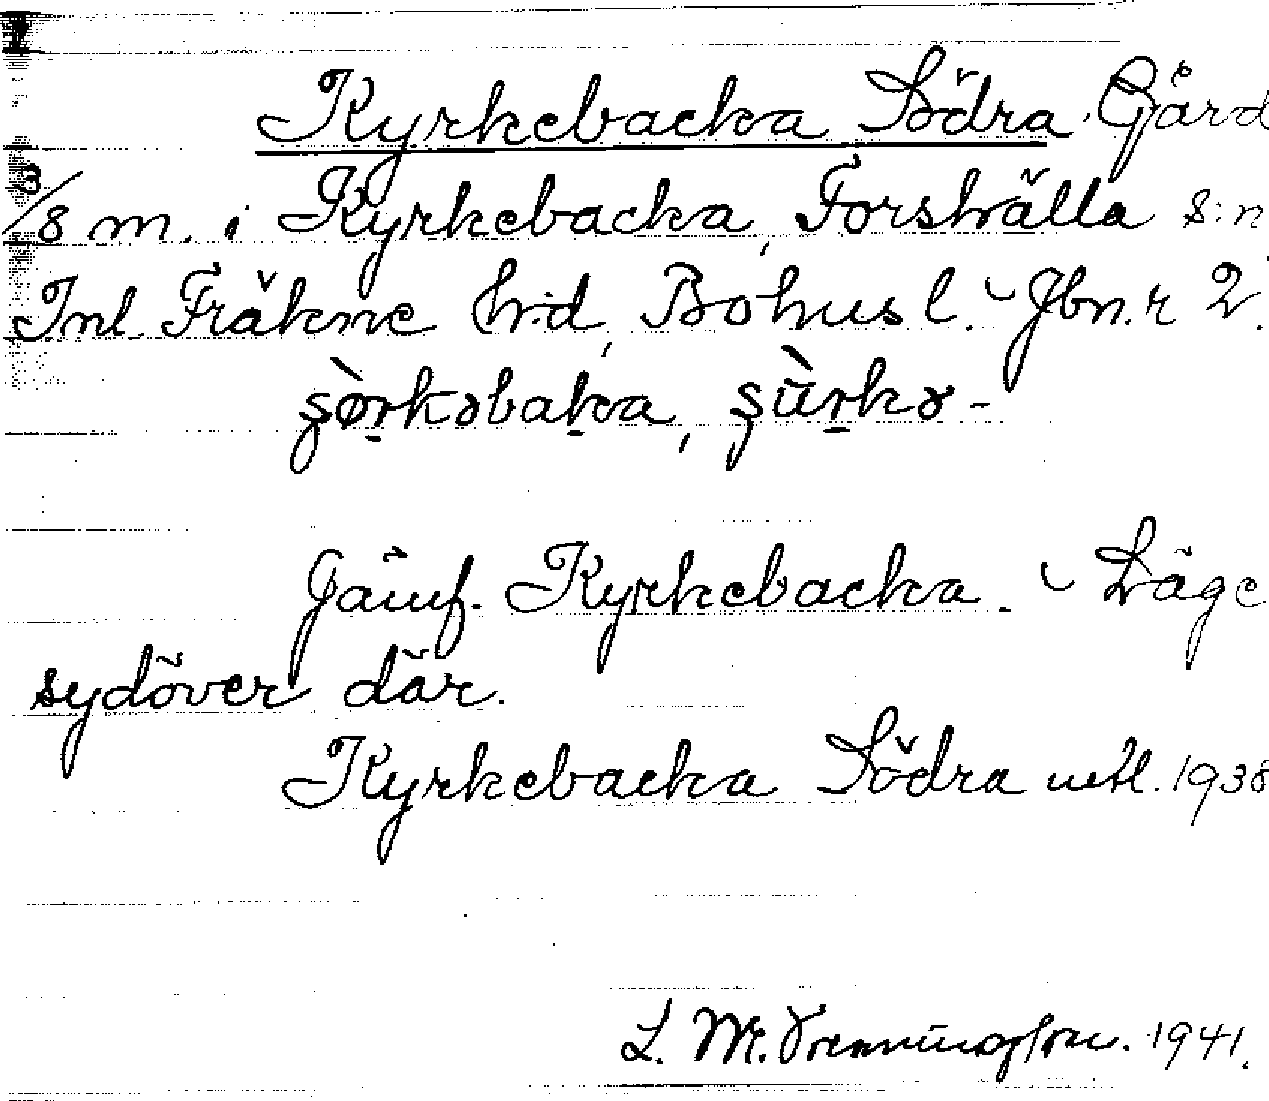 Kyrkebacka Södra. Gård
3/8 m. i Kyrkebacka, Forshälla s:n
Inl. Fräkne h:d, Bohusl. - Jbn.r 2.
Jämf. Kyrkebacka. - Läge
sydöver där.
Kyrkebacka Södra 1938
L. M. 1941.